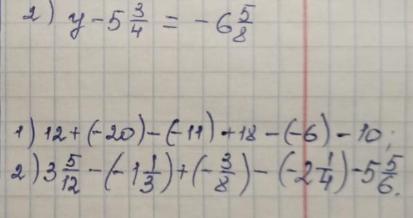 2) y - 5 3/4 = - 6 5/8
1) 12 + (-20) - (-11) + 18 - (-6) - 10;
2) 3 5/12 - (-1 1/3) + (-3/8) - (-2 1/4) - 5 5/6.